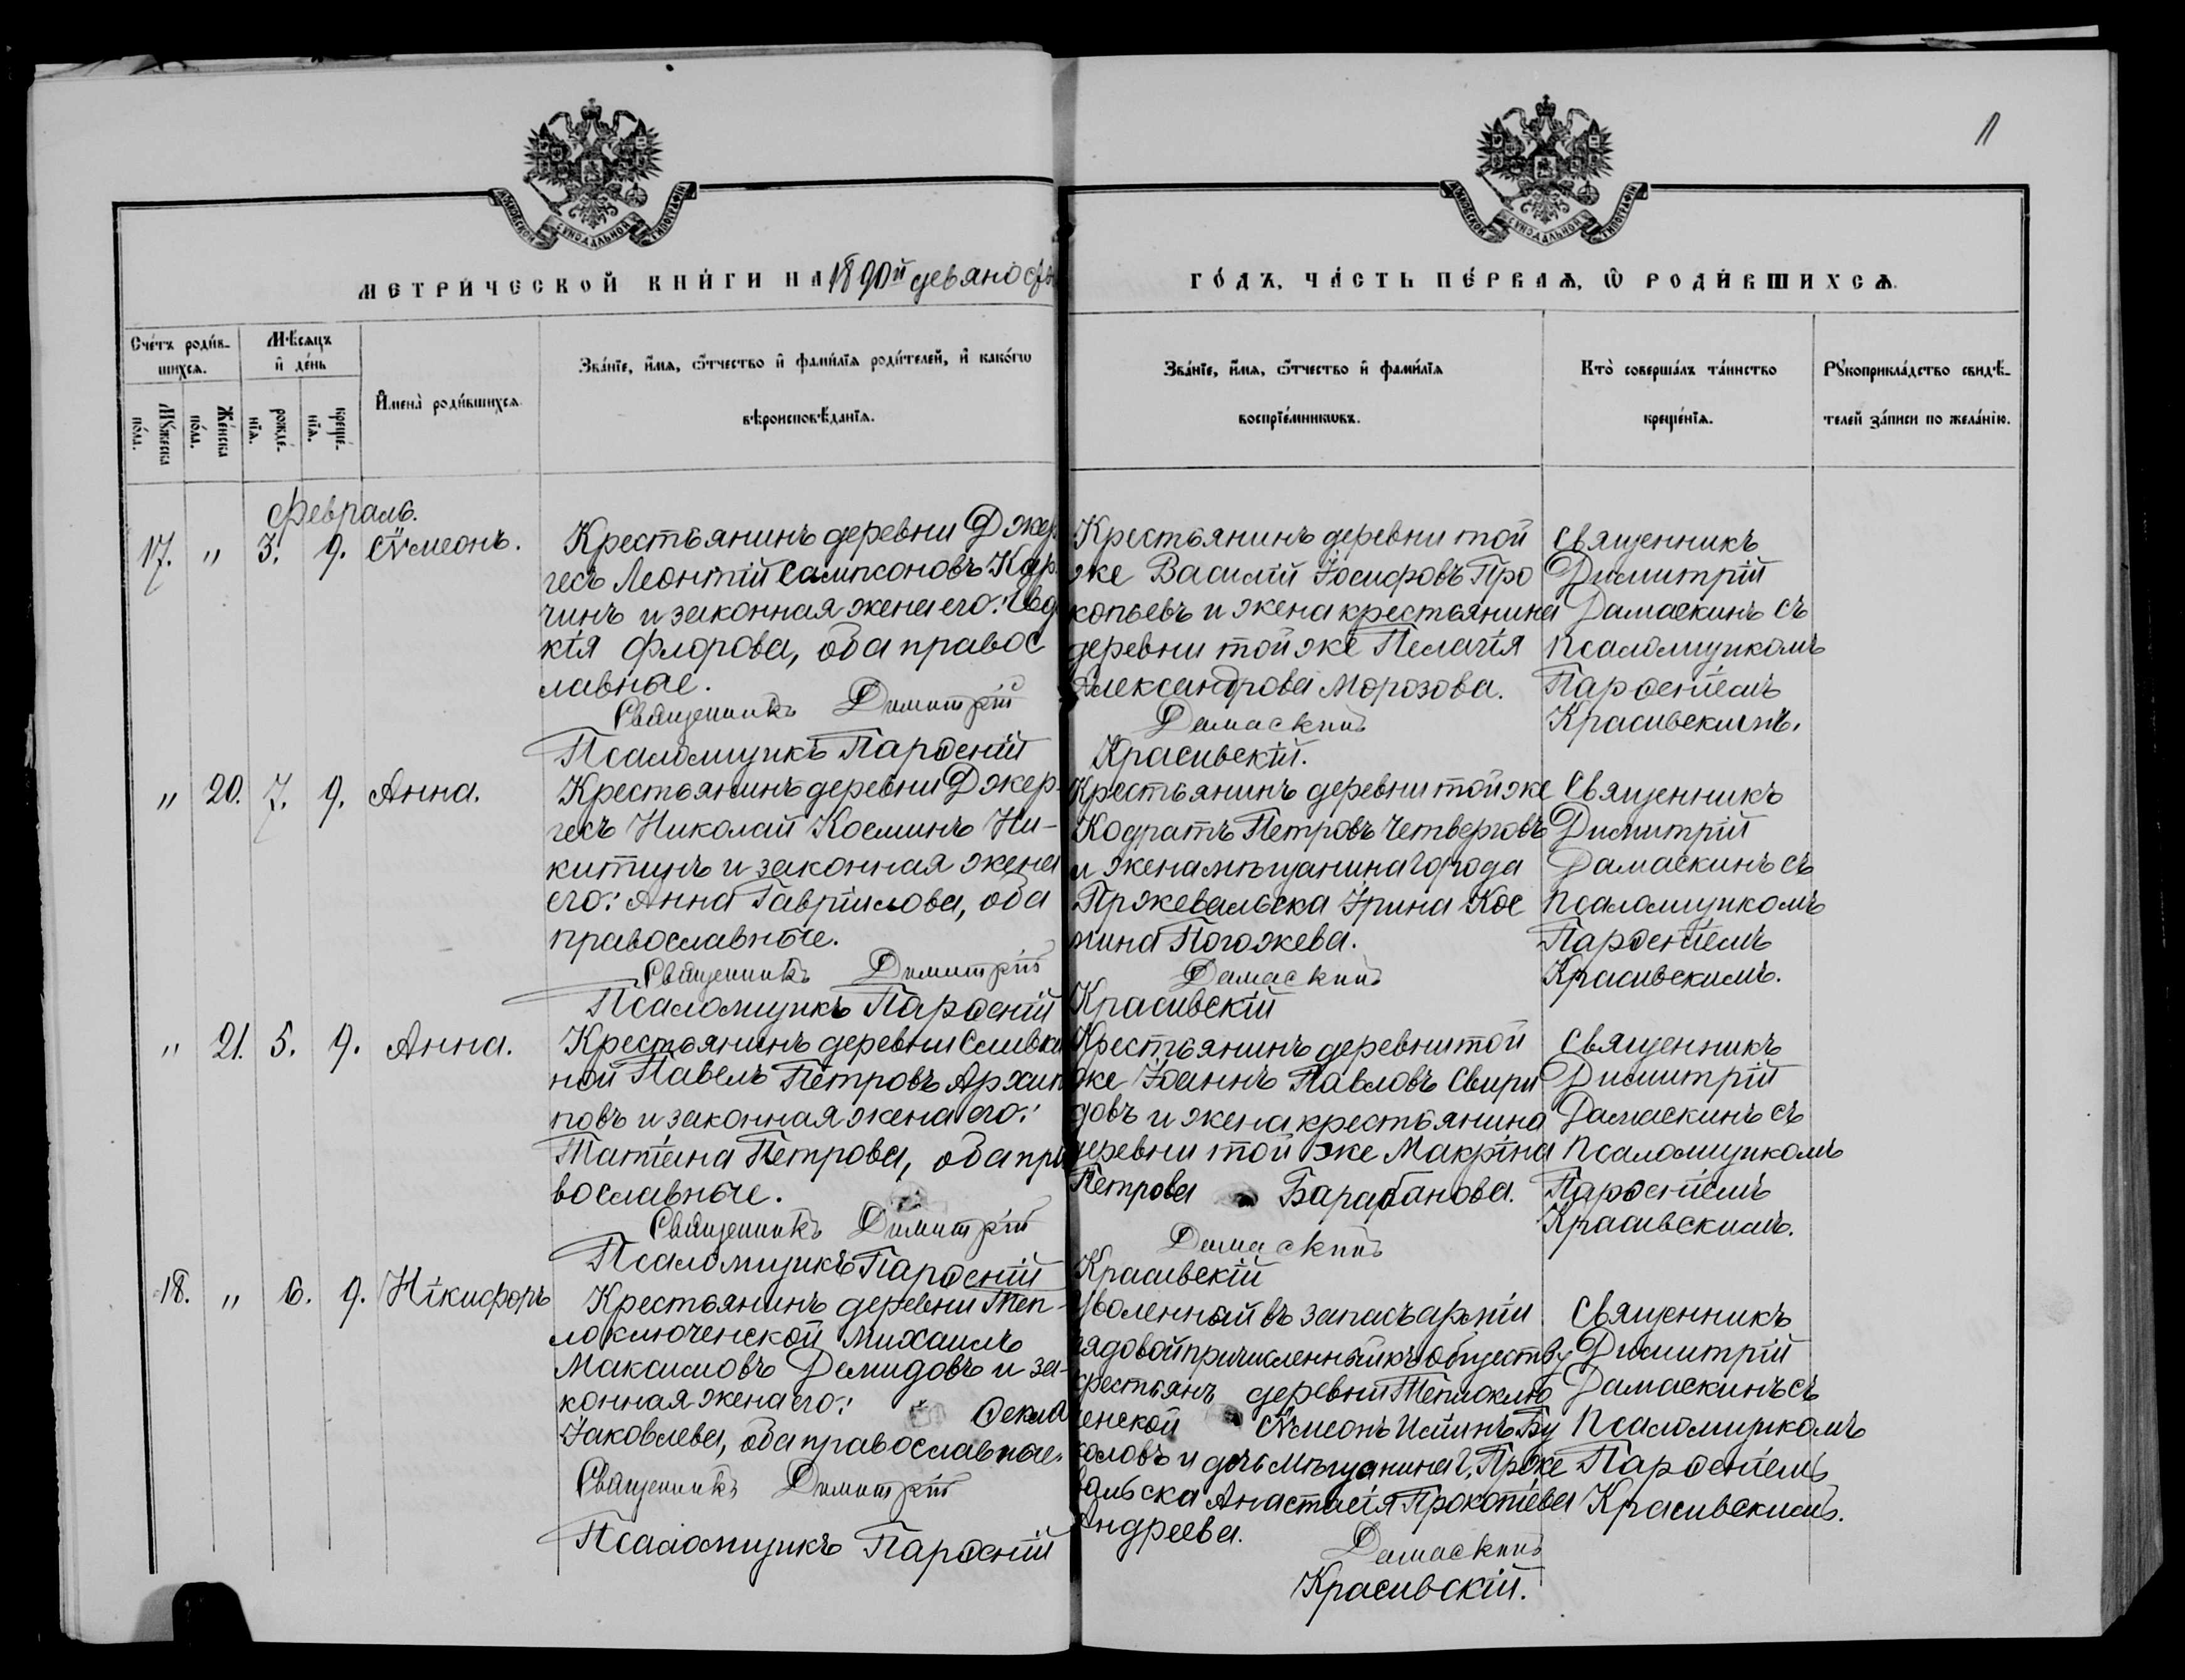 1
МЕТРИЧЕСКОЙ КНИГИ НА 1890й девяносты
ГОДЪ, ЧАСТЬ ПЕРВАѦ, Ѡ РОДИВШИХСѦ.
Счетъ родив-
шихсѧ.
Мѣсѧцъ
и день
Мꙋжеска
пола.
Женска
пола.
рожде-
нїѧ.
креще-
нїѧ.
Имена родившихсѧ.
Званїе, имѧ, ѿчество и фамилїѧ родителей, и какогѡ
вѣроисповѣданїѧ.
Званїе, имѧ, ѿчество и фамилїѧ
воспрїемникѡвъ.
Кто совершалъ таинство
крещенїѧ.
Рꙋкоприкладство свидѣ-
телей записи по желанїю.
Февраль.
17. " 3. 9. Сѵмеонъ.
Крестьянинъ деревни Джер
гесъ Леонтій Сампсоновъ Кар
чинъ и законная жена его: Евдо
кія Флорова, оба правос
лавные.
Священникъ Димитрій
Псаломщикъ Парѳеній
Крестьянинъ деревни той
же Василій Іосифовъ Про
копьевъ и жена крестьянина
деревни той же Пелагія
Александрова Морозова.
Дамаскинъ
Красивскій.
Священникъ
Димитрій
Дамаскинъ съ
псаломщикомъ
Парѳеніемъ
Красивскимъ.
" 20. 7. 9. Анна.
Крестьянинъ деревни Джер-
гесъ Николай Косминъ Ни-
китинъ и законная жена
его: Анна Гавріилова, оба
православные.
Священникъ Димитрій
Псаломщикъ Парѳеній
Крестьянинъ деревни той же
Кодратъ Петровъ Четверговъ
и жена мѣщанина города
Пржевальска Ірина Кос
мина Погожева.
Дамаскинъ
Красивскій
Священникъ
Димитрій
Дамаскинъ съ
псаломщикомъ
Парѳеніемъ
Красивскимъ.
" 21. 5. 9. Анна.
Крестьянинъ деревни Сливки
ной Павелъ Петровъ Архип
повъ и законная жена его:
Татіана Петрова, оба пра
вославные.
Священникъ Димитрій
Псаломщикъ Парѳеній
Крестьянинъ деревни той
же Іоаннъ Павловъ Свири
довъ и жена крестьянина
деревни той же Макріна
Петрова Барабанова.
Дамаскинъ
Красивскій
Священникъ
Димитрій
Дамаскинъ съ
псаломщикомъ
Парѳеніемъ
Красивскимъ.
18. " 6. 9. Нікифоръ
Крестьянинъ деревни Теп-
лоключенской Михаилъ
Максимовъ Демидовъ и за-
конная жена его: Ѳекла
Іаковлева, оба православные.
Священникъ Димитрій
Псаломщикъ Парѳеній
Уволенный въ запасъ арміи
рядовой причисленный къ обществу
крестьянъ деревни Теплоклю
ченской Сѵмеонъ Иліинъ Бу
коловъ и дочь мѣщанина г. Прже
вальска Анастасія Прокопіева
Андреева.
Дамаскинъ
Красивскій.
Священникъ
Димитрій
Дамаскинъ съ
псаломщикомъ
Парѳеніемъ
Красивскимъ.